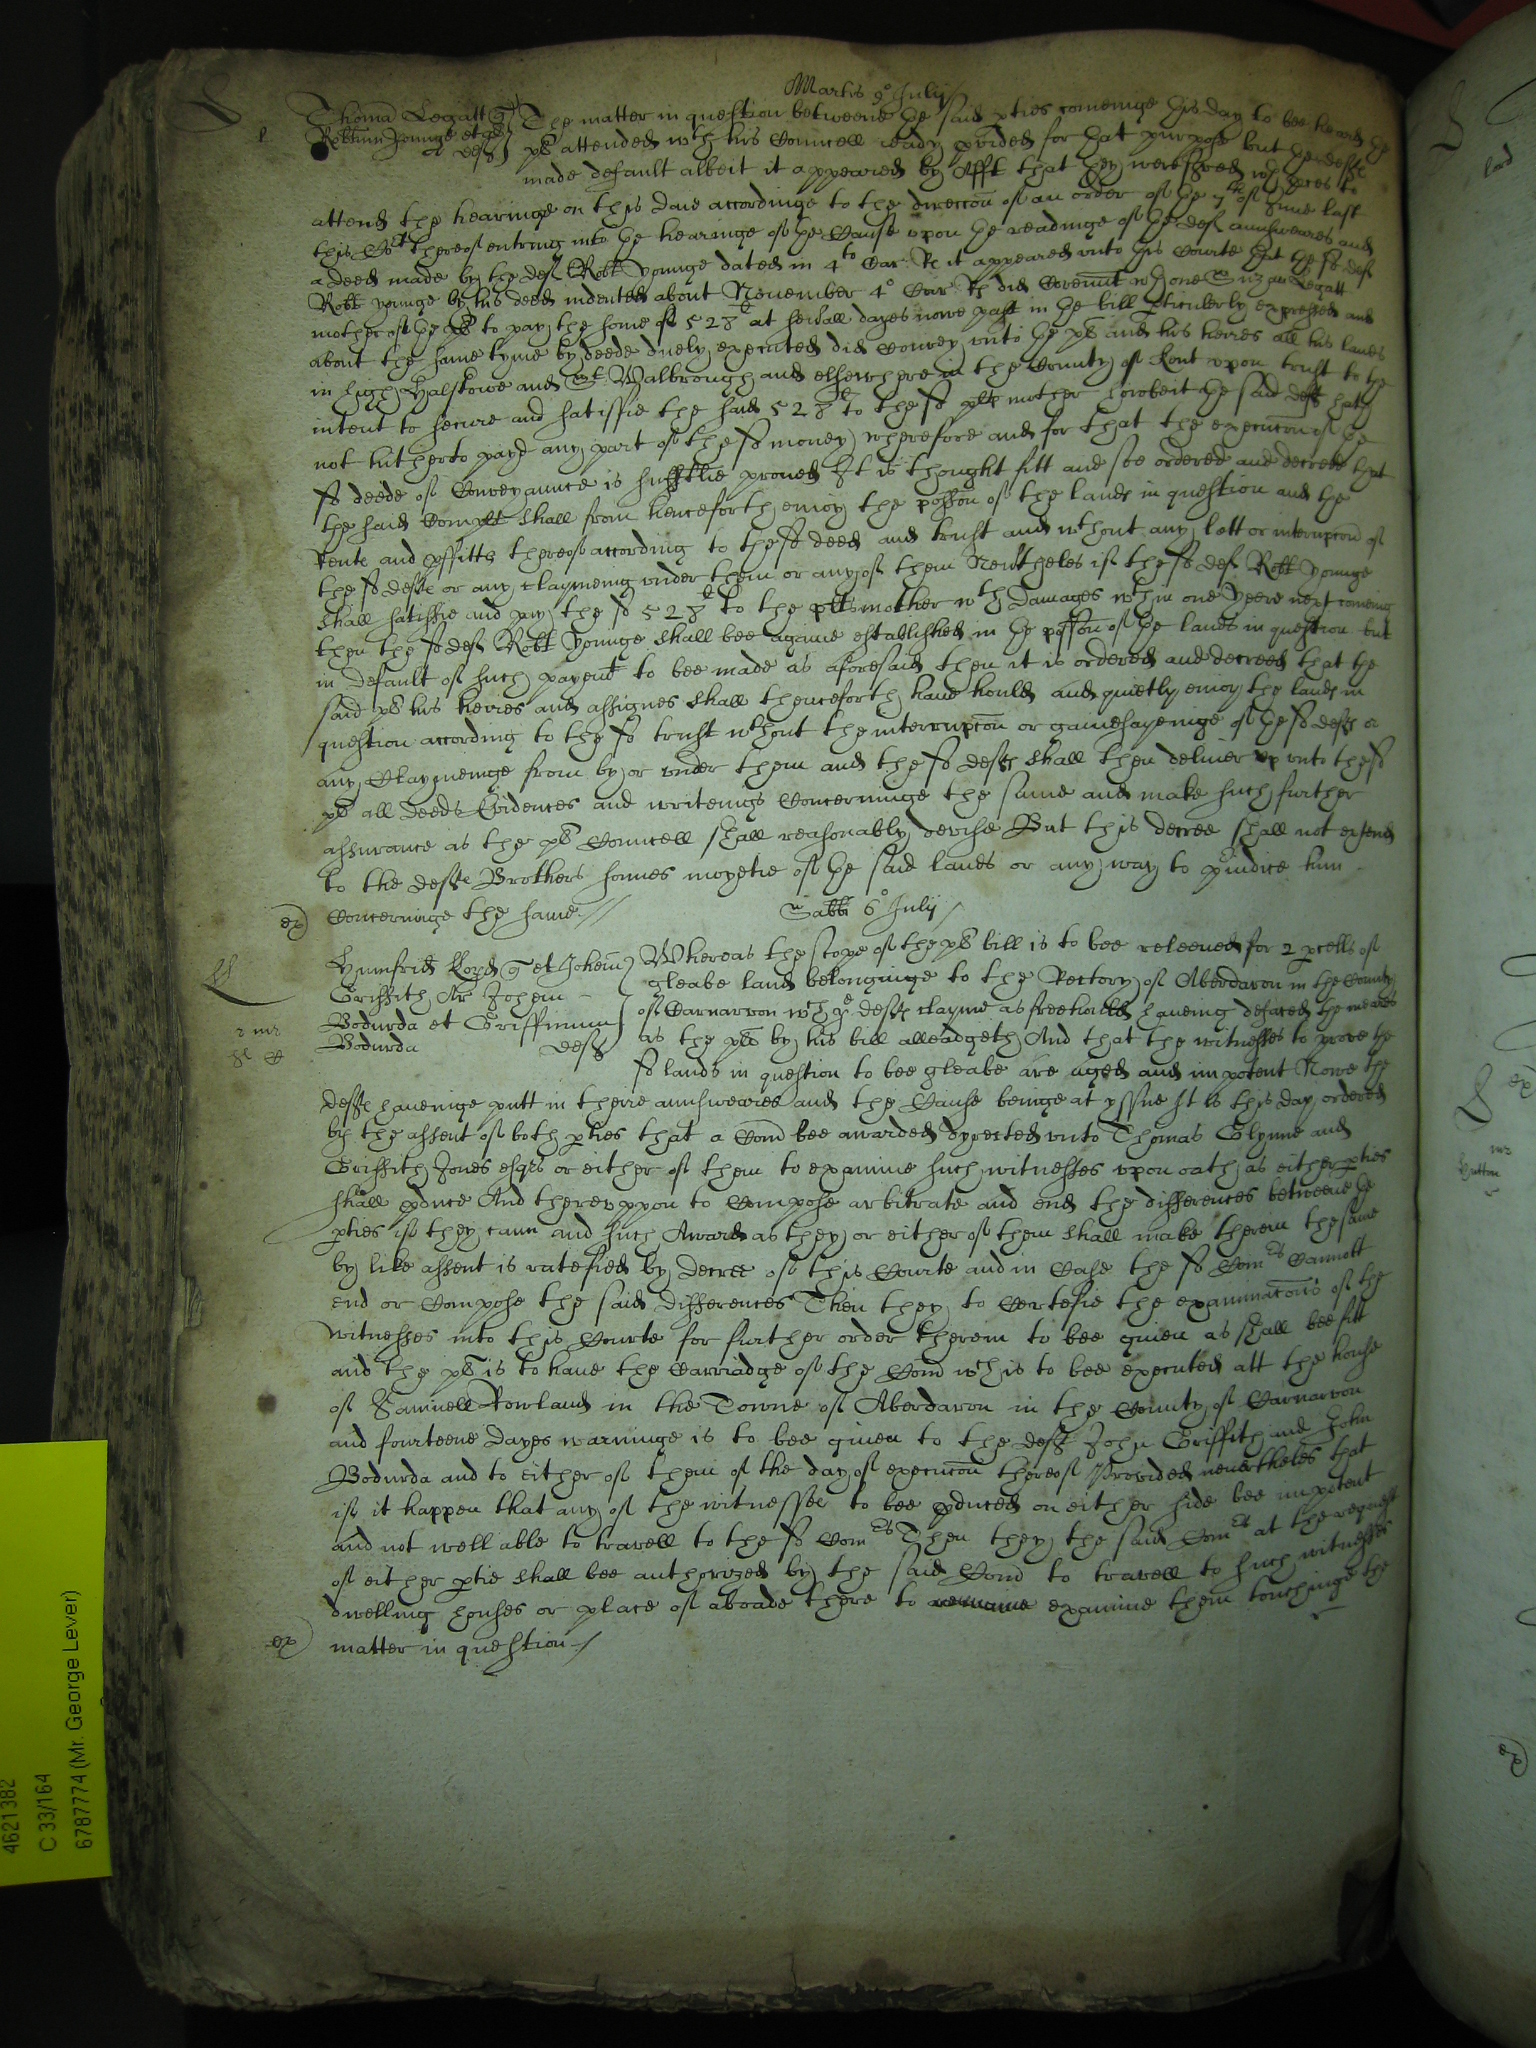 Martis 9° Julij
Thoma Legatt q The matter in question betweene the said pties cominge this day to bee heard the
Robtum Younge et al deftes plt attended wth his Councell ready pvided for that purpose but the defte
made default albeit it appeared by Afft that they were served wth pces to
attend the hearinge on this daie accordinge to the direccon of an order of the 7th of June last
this Cort thereof entring into the hearinge of the Cause upon the readinge of the def answeares and
a deed made by the def Robt Younge dated in 4to Car Rs it appeared unto this Courte that the sd def
Robt younge by his deed indented about November 4° Car Rs did Covennt wth one Legatt
mother of the plt to pay the some of 528l at severall dayes nowe past in the bill pticulerly expressed and
about the same tyme by deede duely executed did Convey unto the plt and his heires all his lands
in high Halstowe and St Walbrough and elsewhere in the County of Kent upon trust to the
intent to secure and satisfie the said 528l to the sd plts mother howbeit the said deft hath
not hitherto payd any part of the sd money wherefore and for that the execucon of the
sd deede of Conveyaunce is suffitlie proved It is thought fitt and soe ordered and decreed that
the said Complt shall from henceforth enioy the posson of the lands in question and the
Rents and pffitts thereof according to the sd deed and trust and wthout any lett or interrupcon of
the sd defte or any claymeing under them or any of them Neutheles if the sd def Robt Younge
shall satisfie and pay the sd 528l to the plts mother wth damages wthin one yeere next comeing
then the sd def Robt Younge shall bee againe established in the posson of the lands in question but
in default of such payemt to bee made as aforesaid then it is ordered and decreed that the
said plt his heires and assignes shall thenceforth have hould and quietly enioy the lands in
question according to the sd trust wthout the interrupcon or gainesayenge of the sd defts or
any Claymeinge from by or under them and the sd defts shall then deliver up unto the sd
plt all deeds Evidences and writeings Concerninge the same and make such further
assurance as the plt Councell shall reasonably devise But this decree shall not extend
to the defte Brothers sonnes moyetie of the said lands or any way to piudice him
ex) Concerninge the same
Sabbi 6° Julij
Humfrid Lloyd q et Johem Whereas the scope of the plt bill is to bee releeved for 2 pcells of
Griffith Ar Johem gleabe land belonginge to the Rectory of Aberdaron in the County
Bodurda et Griffinum of Carnarvon wch ye defts clayme as freehould haveing defaced the meares
Bodurda defts as the plt by his bill alleadgeth And that the witnesses to prove the
sd lands in question to bee gleabe are aged and impotent Nowe the
defte haveinge putt in theire answeares and the Cause beinge at yssue It is this day ordered
by the assent of both pties that a Com bee awarded dyrected unto Thomas Glynne and
Griffith Jones esqrs or either of them to examine such witnesses upon oath as either pties
shall pduce And thereuppon to Compose arbitrate and end the differences betweene the
pties if they cann and such Award as they or either of them shall make therein the same
by like assent is ratefied by decree of this Courte and in Case the sd Comrs Cannott
end or Compose the said differences Then they to Certefie the examinacons of the
witnesses into this Courte for further order therein to bee given as shall bee fitt
and the plt is to have the Carriadge of the Com wch is to bee executed att the house
of Samuell Rowland in the Towne of Aberdaron in the County of Carnarvon
and fourteene dayes warninge is to bee given to the deft John Griffith and John
Bodurda and to either of them of the day of execucon thereof Provided neverthelés that
if it happen that any of the witnesses to bee pduced on either side bee impotent
and not well able to travell to the sd Comrs Then they the said Comrs at the request
of either ptie shall bee authorized by the said Com to travell to such witnesses
dwelling houses or place of aboade there to examine them touchinge the
ex) matter in question
4621382
C 33/164
6787774 (Mr. George Lever)